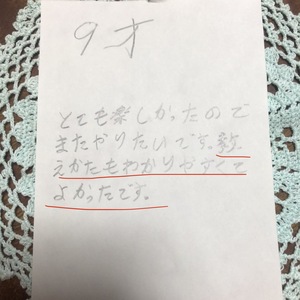 9才
とても楽しかったので
またやりたいです。教
えかたもわかりやすくて
よかったです。